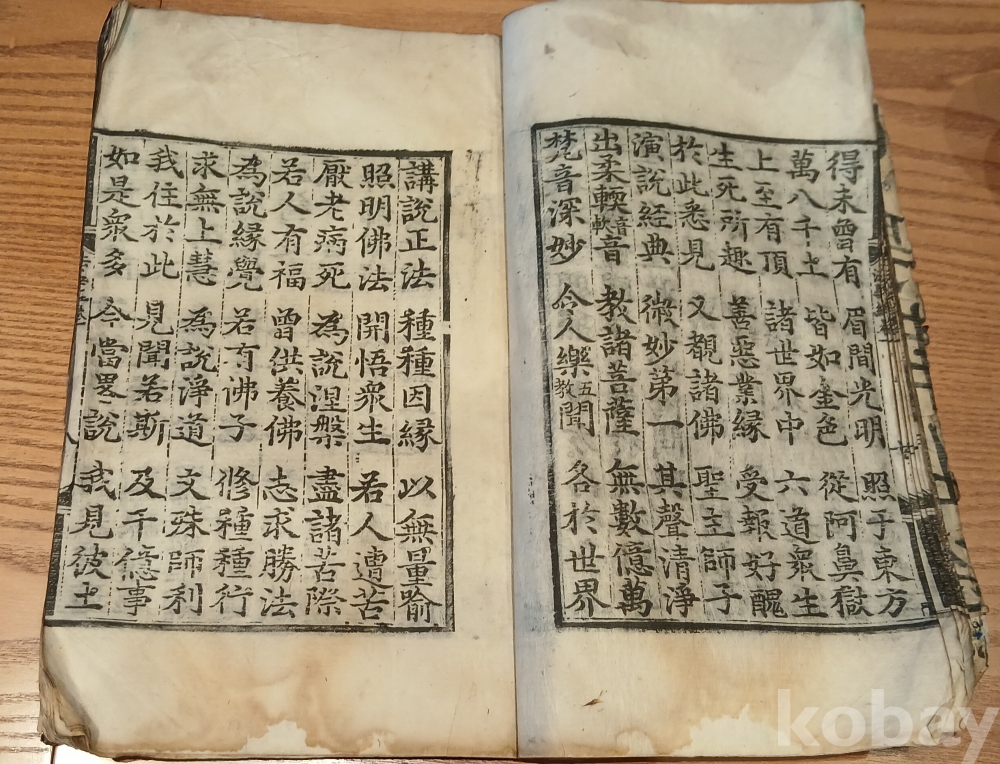 得未曾有 眉間光明 照于東方
萬八千土 皆如金色 從阿鼻獄
上至有頂 諸世界中 六道衆生
生死所趣 善惡業緣 受報好醜
於此悉見 又覩諸佛 聖主師子
演說經典 微妙第一 其聲清淨
出柔輭音軟音 教諸菩薩 無數億萬
梵音深妙 令人樂五教聞 各於世界
講說正法 種種因緣 以無量喻
照明佛法 開悟衆生 若人遭苦
厭老病死 為說涅槃 盡諸苦際
若人有福 曾供養佛 志求勝法
為說緣覺 若有佛子 修種種行
求無上慧 為說淨道 文殊師利
我住於此 見聞若斯 及千億事
如是衆多 今當畧說 我見彼土
kobay